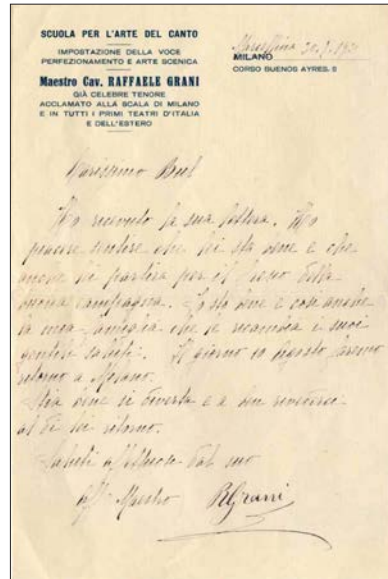 SCUOLA PER L'ARTE DEL CANTO
IMPOSTAZIONE DELLA VOCE
PERFEZIONAMENTO E ARTE SCENICA
Maestro Cav. RAFFAELE GRANI
GIÀ CELEBRE TENORE
ACCLAMATO ALLA SCALA DI MILANO
E IN TUTTI I PRIMI TEATRI D'ITALIA
E DELL'ESTERO
MILANO
CORSO BUENOS AYRES, 5
Carissimo
Ho ricevuto la sua lettera. Ho
piacere sentire che lei sta bene e che
anche lei partirà per il
buona campagna. Io sto bene e così anche
la mia famiglia che le ricambia i suoi
gentili saluti. Il giorno 10 Agosto faremo
ritorno a Milano.
Stia bene si diverta e a ben rivederci
al di lei ritorno.
Saluti affettuosi dal suo
aff. Maestro RGrani